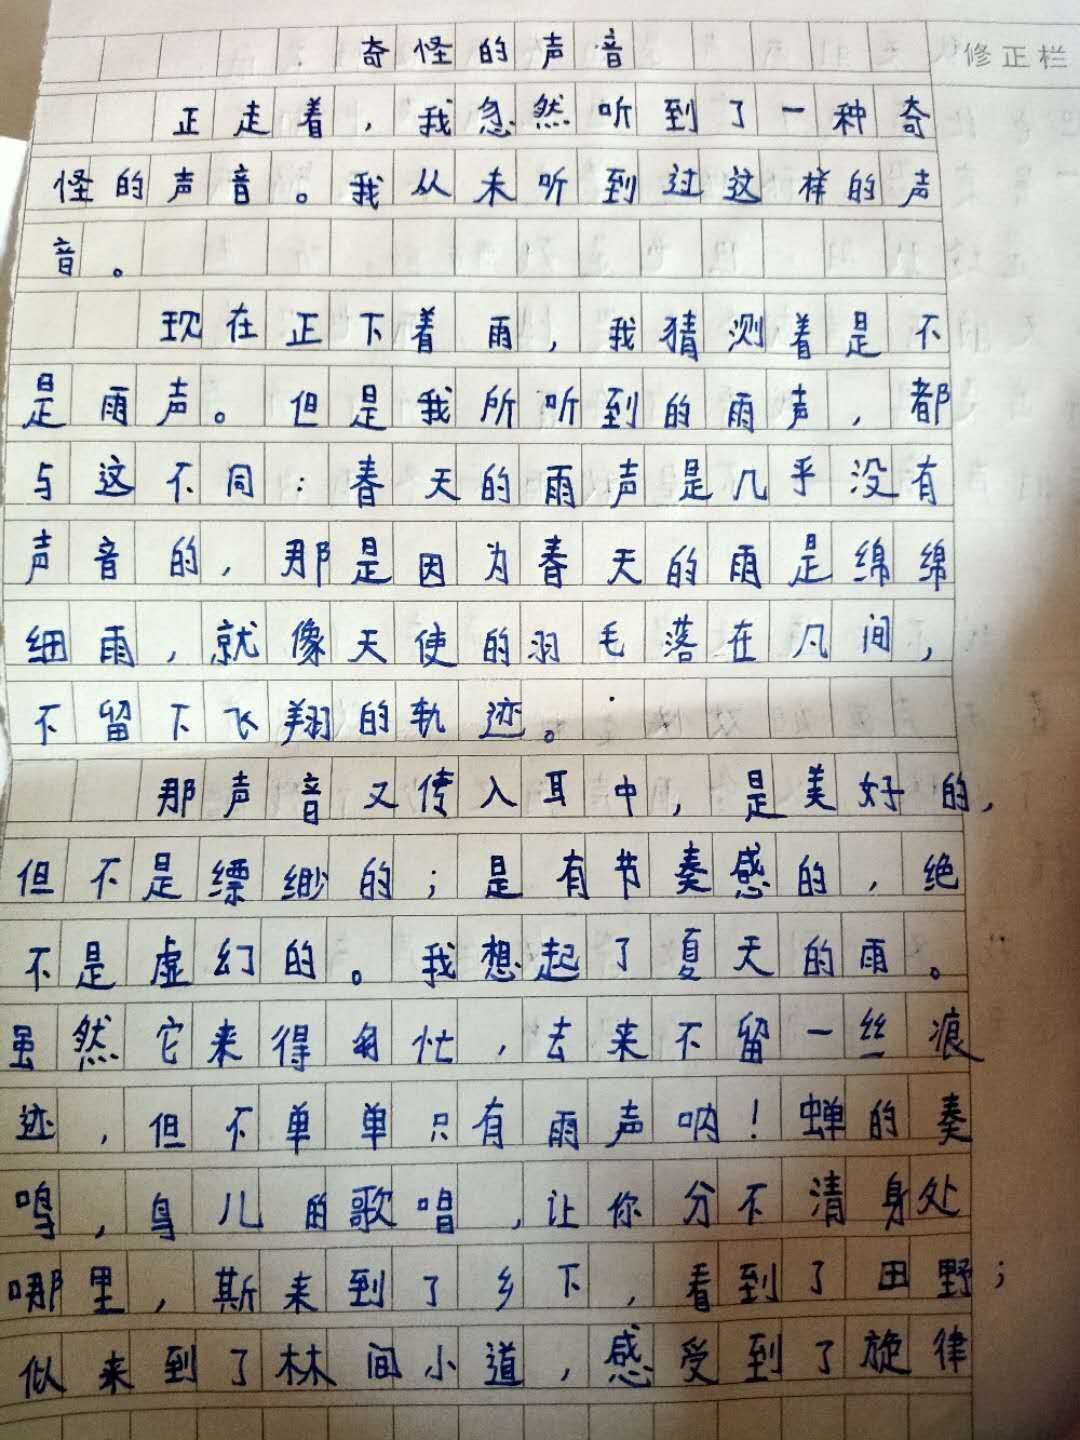 奇怪的声音
修正栏
正走着，我忽然听到了一种奇
怪的声音。我从未听到过这样的声
音。
现在正下着雨，我猜测着是不
是雨声。但是我所听到的雨声，都
与这不同：春天的雨声是几乎没有
声音的，那是因为春天的雨是绵绵
细雨，就像天使的羽毛落在凡间，
不留下飞翔的轨迹。
那声音又传入耳中，是美好的，
但不是缥缈的；是有节奏感的，绝
不是虚幻的。我想起了夏天的雨。
虽然它来得匆忙，去来不留一丝痕
迹，但不单单只有雨声呐！蝉的奏
鸣，鸟儿的歌唱，让你分不清身处
哪里，斯来到了乡下，看到了田野；
似来到了林间小道，感受到了旋律